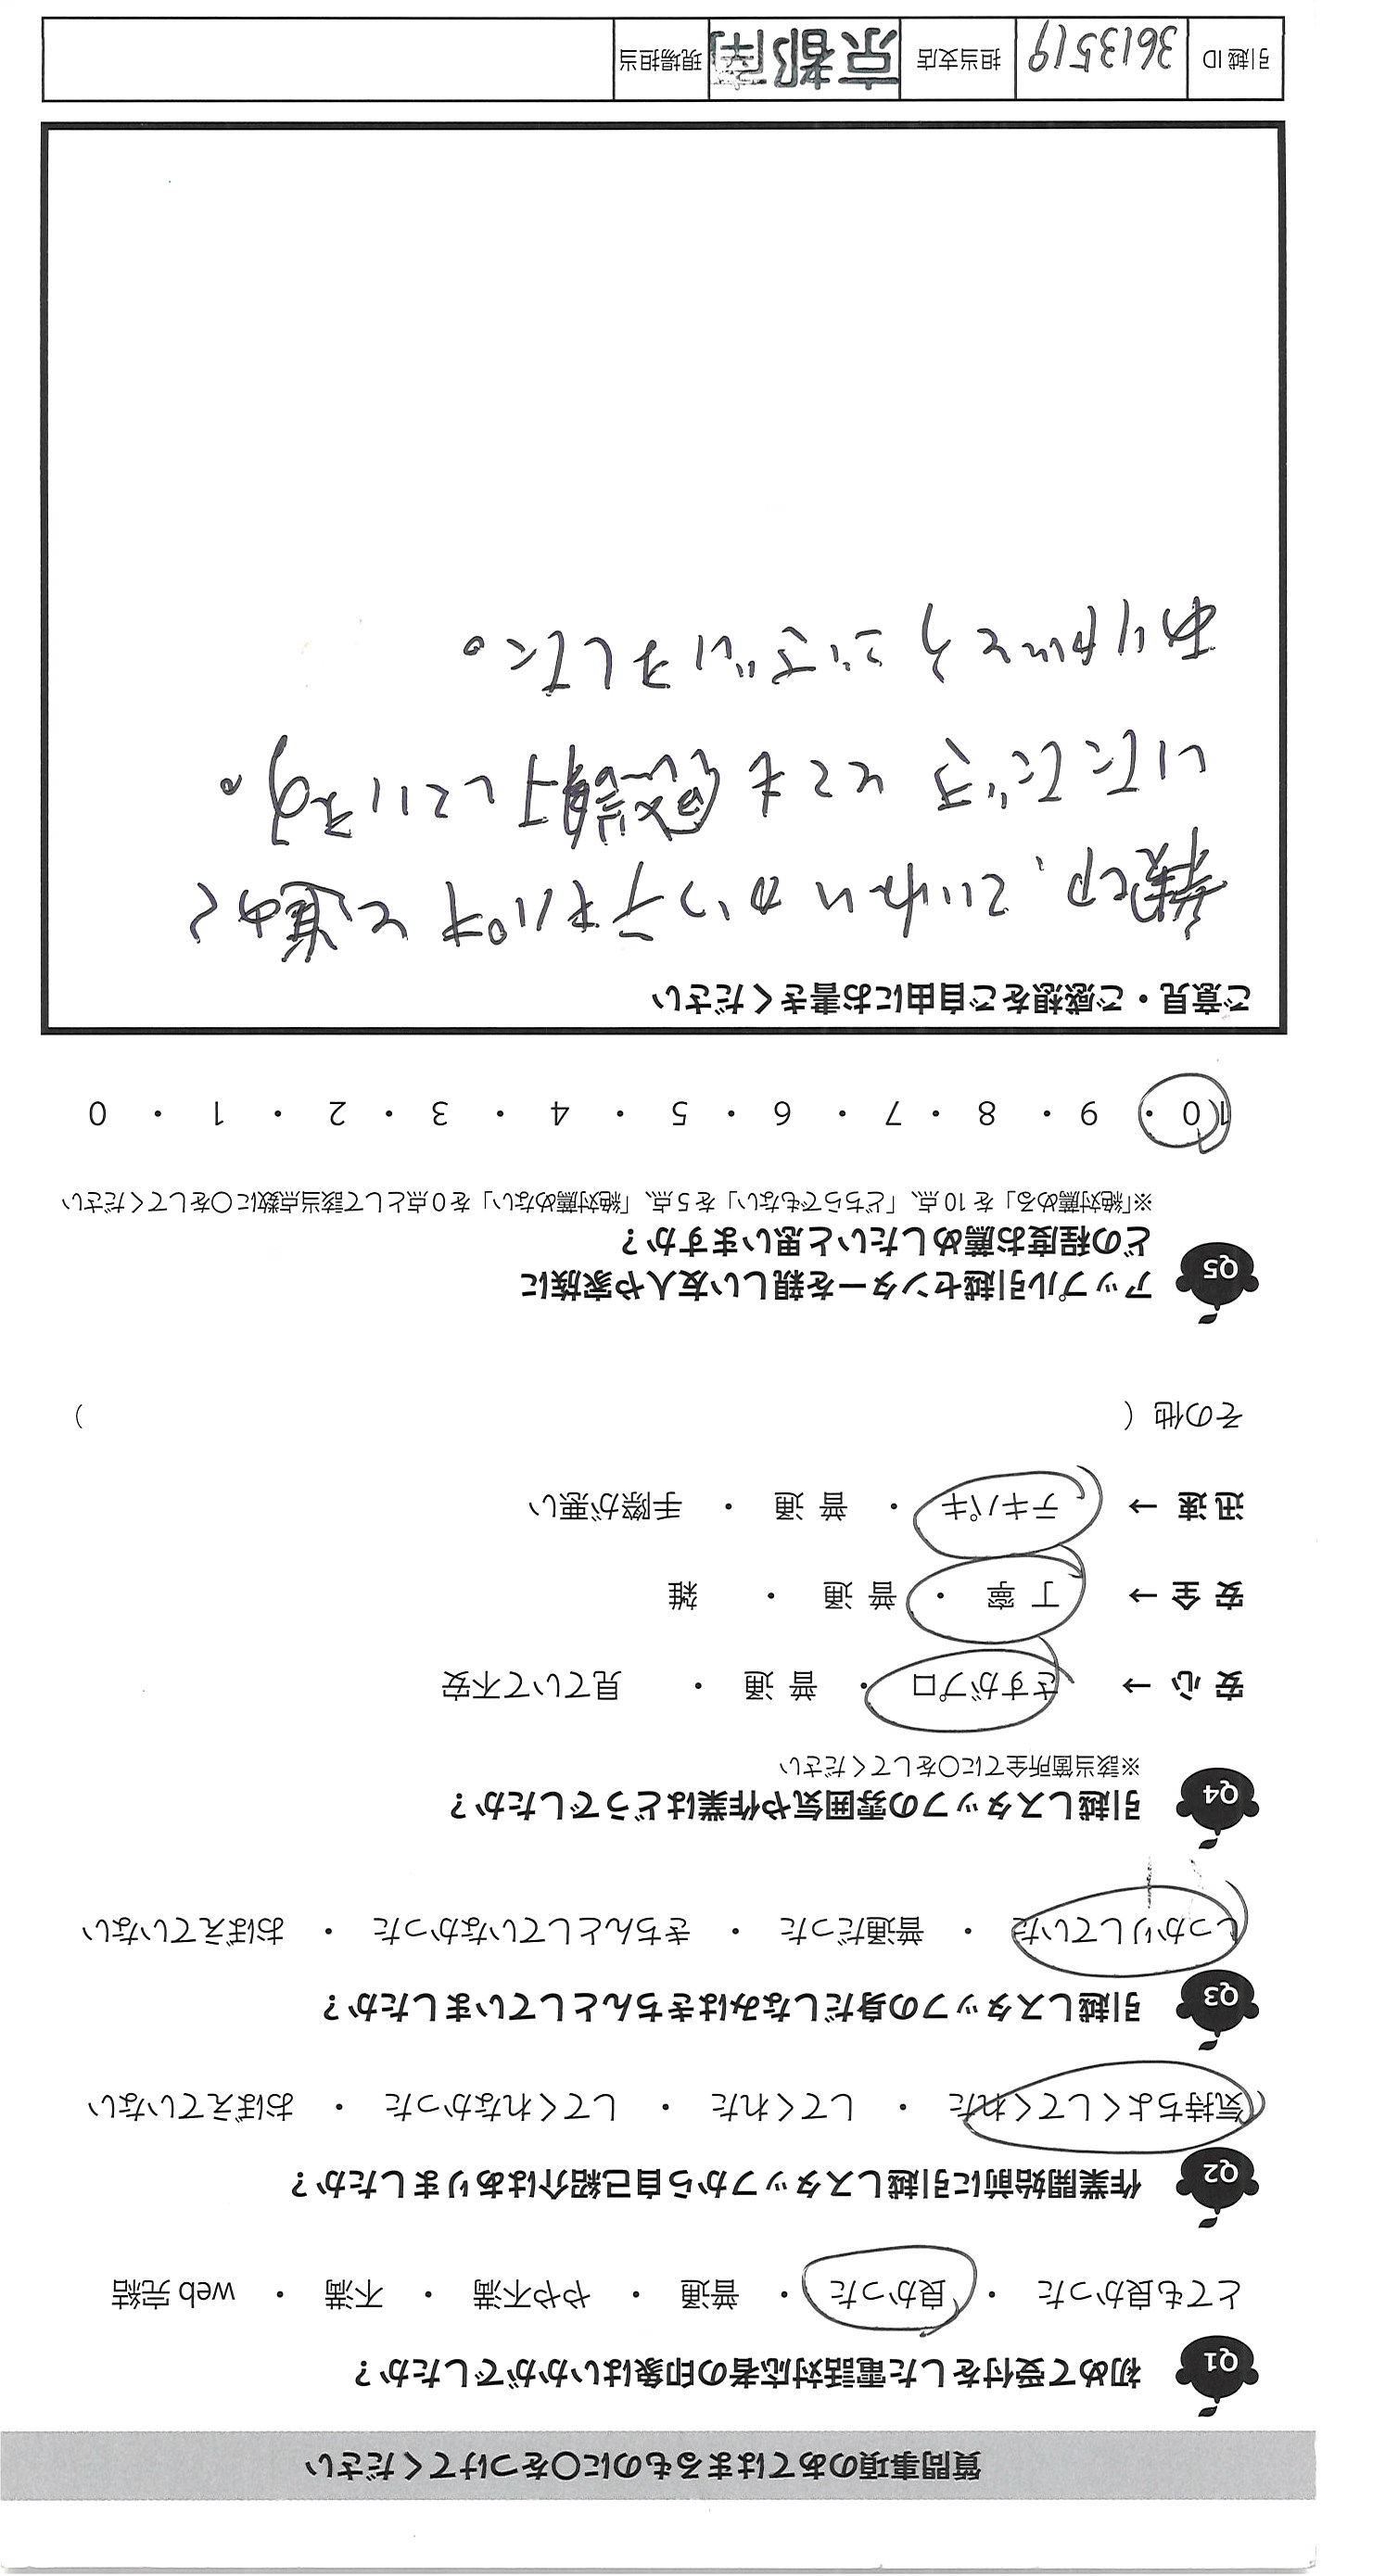 質問事項のあてはまるものに○をつけてください
Q1 初めて受付をした電話対応者の印象はいかがでしたか？
とても良かった ・ 良かった ・ 普通 ・ やや不満 ・ 不満 ・ web 完結
Q2 作業開始前に引越しスタッフから自己紹介はありましたか？
気持ちよくしてくれた ・ してくれた ・ してくれなかった ・ おぼえていない
Q3 引越しスタッフの身だしなみはきちんとしていましたか？
しっかりしていた ・ 普通だった ・ きちんとしていなかった ・ おぼえていない
Q4 引越しスタッフの雰囲気や作業はどうでしたか？
※該当箇所全てに○をしてください
安 心 → さすがプロ ・ 普 通 ・ 見ていて不安
安 全 → 丁 寧 ・ 普 通 ・ 雑
迅 速 → テキパキ ・ 普 通 ・ 手際が悪い
その他（ ）
Q5 アップル引越センターを親しい友人や家族に
どの程度お薦めしたいと思いますか？
※「絶対薦める」を 10 点、「どちらでもない」を 5 点、「絶対薦めない」を 0 点として該当点数に○をしてください
10 ・ 9 ・ 8 ・ 7 ・ 6 ・ 5 ・ 4 ・ 3 ・ 2 ・ 1 ・ 0
ご意見・ご感想をご自由にお書きください
親切、ていねい かつ テキパキと進めて
いただき とても感謝しています。
ありがとうございました。
引越 ID 3613519 担当支店 京都南 現場担当